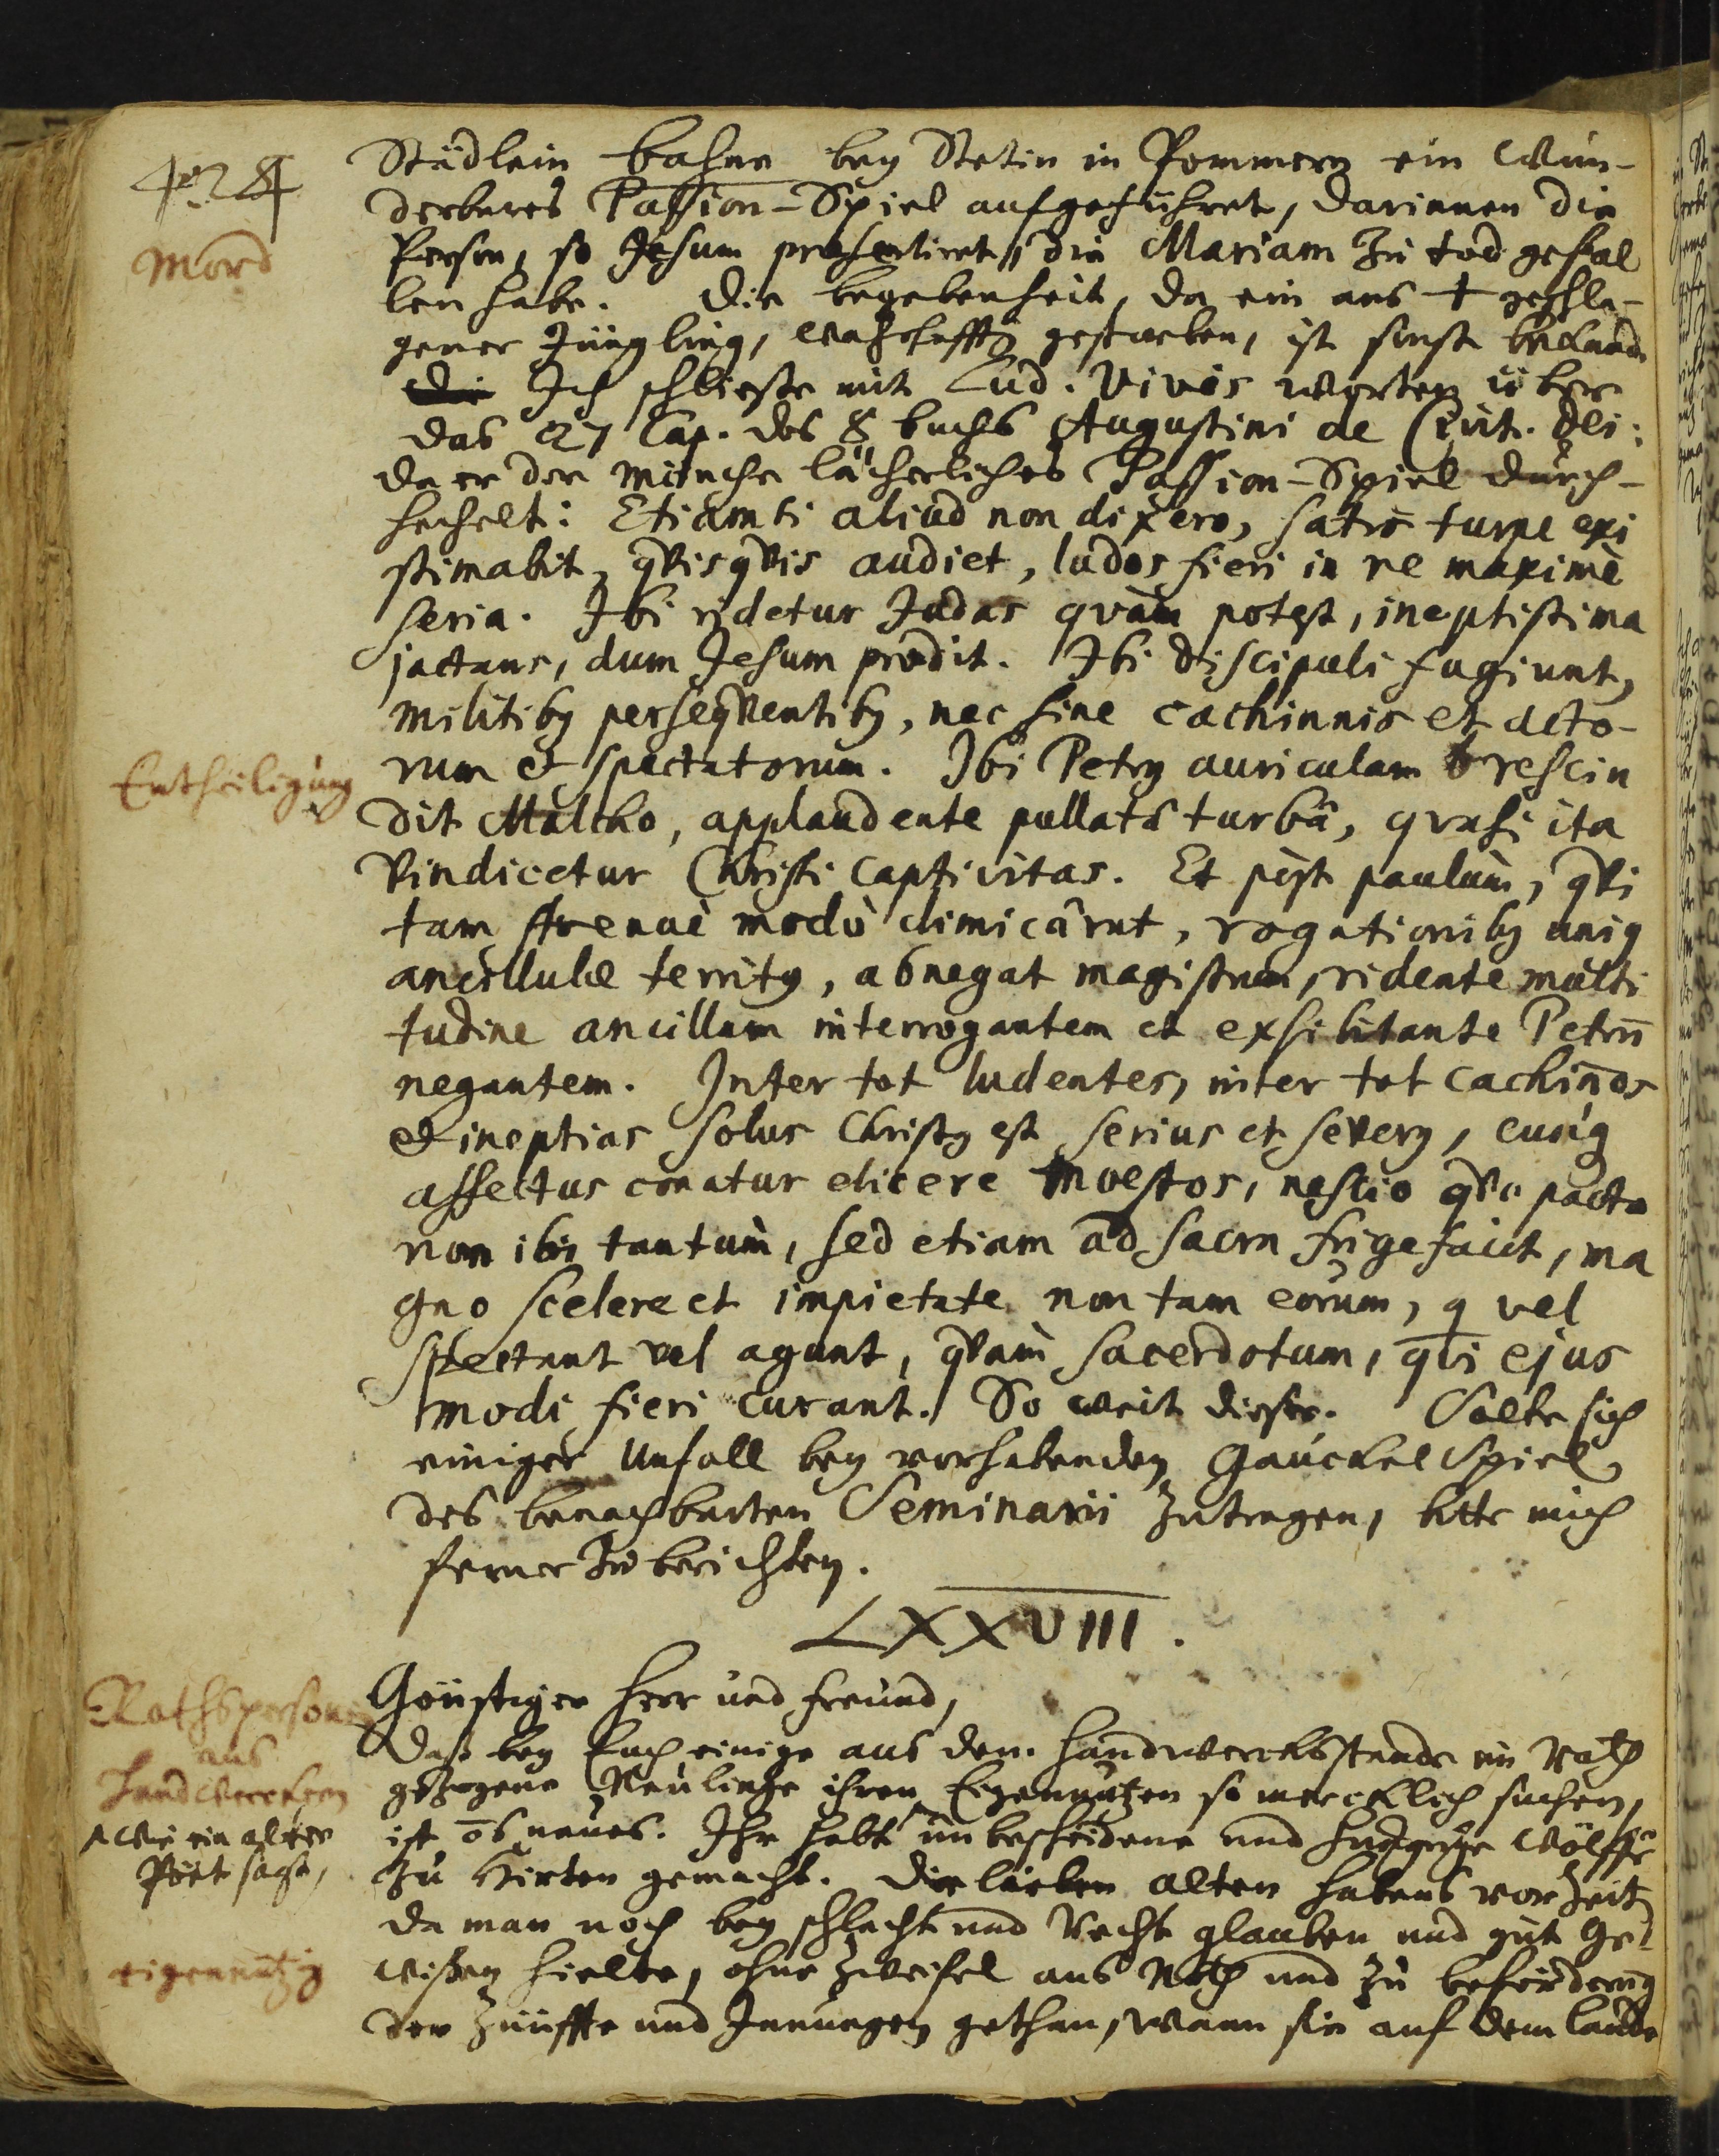 Mord
Städlein bahne bey Stetin in Pommern ein Wun-
derbares Passion-Spiel aufgeführet, darinnen die
Person, so Jesum præsentiret, die Mariam zu tod gefal
len habe. Die begebenheit, da ein ans + geschla-
gener Jüngling, wahrhafftig gestorben, ist sonst bekandt
Ich schliesse mit Lud. Vives worten über
das 27 Cap. des 8 buchs Augustini de Civit. Dei:
da er der Münche lächerliches Passion-Spiel durch-
hechelt: Etiamsi aliud non dixero, satis turpe exi
stimabit, qvisqvis audiet, ludos fieri in re maximè
seria. Ibi ridetur Judas qvàm potest, ineptissima
jactans, dum Jesum prodit. Ibi discipuli fugiunt,
militibq perseqventibq, nec sine cachinnis et acto-
Entheiligung
rum et spectatorum. Ibi Petrq auriculam rescin
dit Malcho, applaudente pullatâ turbâ, qvasi ita
Vindicetur Christi captivitas. Et pòst paulùm, qvi
tam strenuè modò dimicârat, rogationibq uniq
ancillulæ territq, abnegat magistrum, ridente multi
tudine ancillam interrogantem et exsibilante Petrū
negantem. Inter tot ludentes, inter tot cachin̄os
et ineptias solus Christq est serius et severq, cumq
affectus conatur elicere moestos, nescio qvo pacto
non ibi tantùm, sed etiam ad sacra frigefacit, ma
gno scelere et impietate non tam eorum, q vel
spectant vel agunt, qvàm sacerdotum, qvi ejus
modi fieri curant. So weit dieser. Solte sich
einiger Unfall bey vorhabenden Gauckel Spiel
des benachbarten Seminarii zutragen, bitte mich
ferner zu berichten.
LXXVIII.
Rathspersonen
aus
Handwerckern
Günstiger Herr und freund,
Daß bey Euch einige aus dem Handwercksstande in Rath
gezogene Neulinge ihren Eigennutzen so mercklich suchen,
wie ein alter
Poët sagt,
ist ōs neues. Ihr habt unbescheidene und hungrige Wölffe
zu Hirten gemacht. Die lieben alten habens vor Zeitē
da man noch bey schlecht und Recht glauben und gut Ge-
eigennützig
wißen hielte, ohne Zweifel aus Noth und zu beförderung
der Zünffte und Innungen gethan, wann sie auf dem Lande